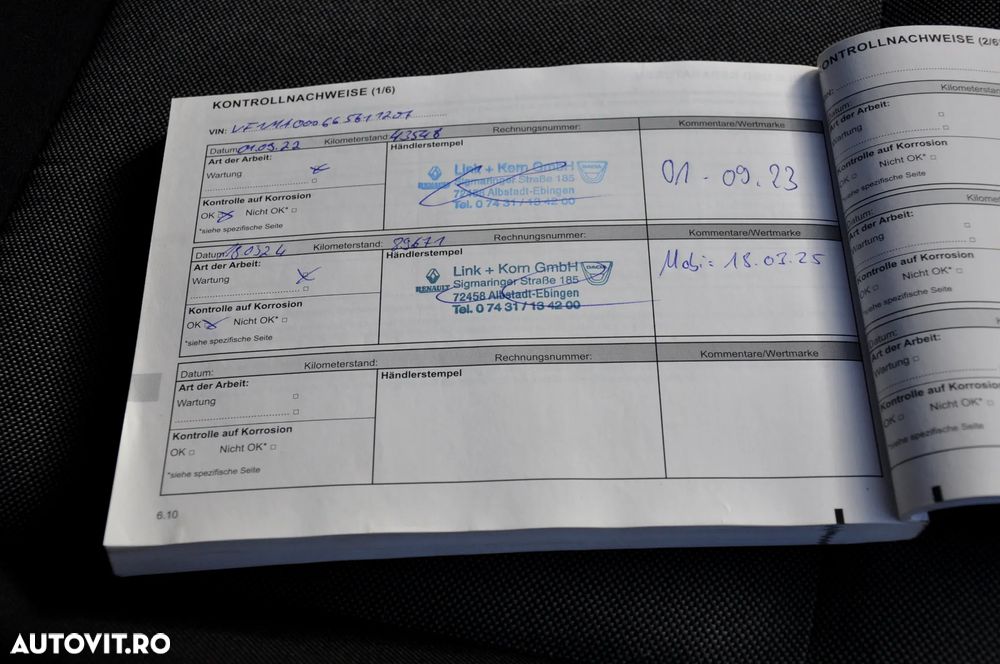 KONTROLLNACHWEISE (1/6)
VIN: VF1MA000665611207
Datum: 01.09.22 Kilometerstand: 43548 Rechnungsnummer: Kommentare/Wertmarke
Art der Arbeit: Händlerstempel
Wartung
Link + Korn GmbH
RENAULT Sigmaringer Straße 185 DACIA
72458 Albstadt-Ebingen
Tel. 0 74 31 / 13 42 00
01-09.23
Kontrolle auf Korrosion
OK Nicht OK*
*siehe spezifische Seite
Datum: 18.03.24 Kilometerstand: 29671 Rechnungsnummer: Kommentare/Wertmarke
Art der Arbeit: Händlerstempel
Wartung
Link + Korn GmbH
RENAULT Sigmaringer Straße 185 DACIA
72458 Albstadt-Ebingen
Tel. 0 74 31 / 13 42 00
Mobi: 18.03.25
Kontrolle auf Korrosion
OK Nicht OK*
*siehe spezifische Seite
Datum: Kilometerstand: Rechnungsnummer: Kommentare/Wertmarke
Art der Arbeit: Händlerstempel
Wartung
Kontrolle auf Korrosion
OK Nicht OK*
*siehe spezifische Seite
6.10
ONTROLLNACHWEISE (2/6
Datum: Kilometerstand
Art der Arbeit:
Wartung
Kontrolle auf Korrosion
OK Nicht OK*
*siehe spezifische Seite
Art der Arbeit:
Wartung
Kontrolle auf Korrosion
OK Nicht OK*
*siehe spezifische Seite
Datum:
Art der Arbeit:
Wartung
Kontrolle auf Korrosion
OK Nicht OK*
*siehe spezifische Seite
AUTOVIT.RO